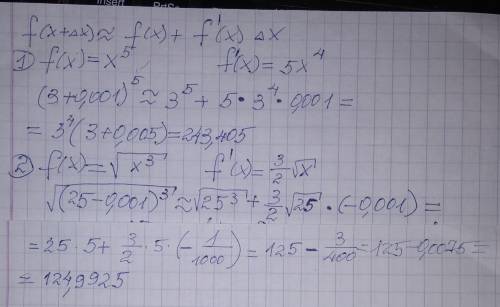 f(x+Δx)≈ f(x)+ f'(x) Δx
① f(x)=x⁵ f'(x)=5x⁴
(3+0,001)⁵ ≈ 3⁵ + 5·3⁴·0,001 =
= 3⁴(3+0,005)=243,405
② f(x)=√x³ f'(x)=3/2 √x
√(25-0,001)³ ≈ √25³ + 3/2 √25 · (-0,001) =
= 25·5 + 3/2 ·5·(-1/1000) = 125 - 3/400 = 125-0,0075 =
= 124,9925